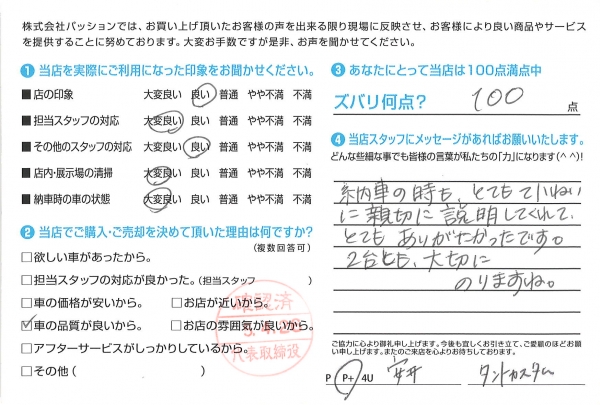 株式会社パッションでは、お買い上げ頂いたお客様の声を出来る限り現場に反映させ、お客様により良い商品やサービス
を提供することに努めております。大変お手数ですが是非、お声を聞かせてください。
1 当店を実際にご利用になった印象をお聞かせください。
■店の印象 大変良い 良い 普通 やや不満 不満
■担当スタッフの対応 大変良い 良い 普通 やや不満 不満
■その他のスタッフの対応 大変良い 良い 普通 やや不満 不満
■店内・展示場の清掃 大変良い 良い 普通 やや不満 不満
■納車時の車の状態 大変良い 良い 普通 やや不満 不満
2 当店でご購入・ご売却を決めて頂いた理由は何ですか?
(複数回答可)
□欲しい車があったから。
□担当スタッフの対応が良かった。(担当スタッフ )
□車の価格が安いから。 □お店が近いから。
□車の品質が良いから。 □お店の雰囲気が良いから。
□アフターサービスがしっかりしているから。
□その他( )
確認済
代表取締役
3 あなたにとって当店は100点満点中
ズバリ何点? 100 点
4 当店スタッフにメッセージがあればお願いいたします。
どんな些細な事でも皆様の言葉が私たちの「力」になります(^^)!
納車の時も、とてもていねい
に親切に説明してくれて、
とてもありがたかったです。
2台とも、大切に
のりますね。
ご協力に心より御礼申し上げます。今後も宜しくお引き立て、ご愛顧のほどお願
い申し上げます。またのご来店を心よりお待ちしております。
P P+ 4U 安井 タントカスタム